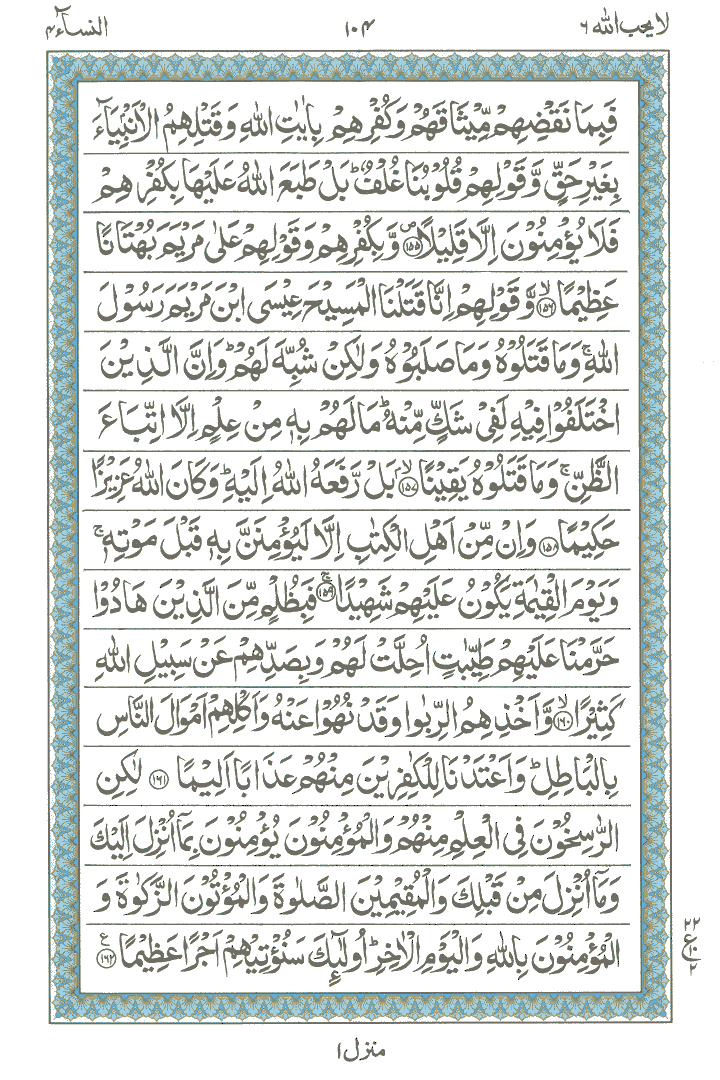 لا يحب الله ٦ ١٠٤ النساء ٤
فَبِمَا نَقْضِهِمْ مِّيْثَاقَهُمْ وَكُفْرِهِمْ بِاٰيٰتِ اللّٰهِ وَقَتْلِهِمُ الْاَنْۢبِيَآءَ
بِغَيْرِ حَقٍّ وَّقَوْلِهِمْ قُلُوْبُنَا غُلْفٌ ؕ بَلْ طَبَعَ اللّٰهُ عَلَيْهَا بِكُفْرِهِمْ
فَلَا يُؤْمِنُوْنَ اِلَّا قَلِيْلًا ۪﴿١٥٥﴾ وَّبِكُفْرِهِمْ وَقَوْلِهِمْ عَلٰى مَرْيَمَ بُهْتَانًا
عَظِيْمًا ۙ﴿١٥٦﴾ وَّقَوْلِهِمْ اِنَّا قَتَلْنَا الْمَسِيْحَ عِيْسَى ابْنَ مَرْيَمَ رَسُوْلَ
اللّٰهِ ۚ وَمَا قَتَلُوْهُ وَمَا صَلَبُوْهُ وَلٰكِنْ شُبِّهَ لَهُمْ ؕ وَاِنَّ الَّذِيْنَ
اخْتَلَفُوْا فِيْهِ لَفِيْ شَكٍّ مِّنْهُ ؕ مَا لَهُمْ بِهٖ مِنْ عِلْمٍ اِلَّا اتِّبَاعَ
الظَّنِّ ۚ وَمَا قَتَلُوْهُ يَقِيْنًا ۙ﴿١٥٧﴾ بَلْ رَّفَعَهُ اللّٰهُ اِلَيْهِ ؕ وَكَانَ اللّٰهُ عَزِيْزًا
حَكِيْمًا ﴿١٥٨﴾ وَاِنْ مِّنْ اَهْلِ الْكِتٰبِ اِلَّا لَيُؤْمِنَنَّ بِهٖ قَبْلَ مَوْتِهٖ ۚ
وَيَوْمَ الْقِيٰمَةِ يَكُوْنُ عَلَيْهِمْ شَهِيْدًا ۚ﴿١٥٩﴾ فَبِظُلْمٍ مِّنَ الَّذِيْنَ هَادُوْا
حَرَّمْنَا عَلَيْهِمْ طَيِّبٰتٍ اُحِلَّتْ لَهُمْ وَبِصَدِّهِمْ عَنْ سَبِيْلِ اللّٰهِ
كَثِيْرًا ۙ﴿١٦٠﴾ وَّاَخْذِهِمُ الرِّبٰوا وَقَدْ نُهُوْا عَنْهُ وَاَكْلِهِمْ اَمْوَالَ النَّاسِ
بِالْبَاطِلِ ؕ وَاَعْتَدْنَا لِلْكٰفِرِيْنَ مِنْهُمْ عَذَابًا اَلِيْمًا ﴿١٦١﴾ لٰكِنِ
الرّٰسِخُوْنَ فِي الْعِلْمِ مِنْهُمْ وَالْمُؤْمِنُوْنَ يُؤْمِنُوْنَ بِمَآ اُنْزِلَ اِلَيْكَ
وَمَآ اُنْزِلَ مِنْ قَبْلِكَ وَالْمُقِيْمِيْنَ الصَّلٰوةَ وَالْمُؤْتُوْنَ الزَّكٰوةَ وَ
الْمُؤْمِنُوْنَ بِاللّٰهِ وَالْيَوْمِ الْاٰخِرِ ؕ اُولٰٓئِكَ سَنُؤْتِيْهِمْ اَجْرًا عَظِيْمًا ﴿١٦٢﴾ ع
٢٢
ع ١٠
٢
منزل ١